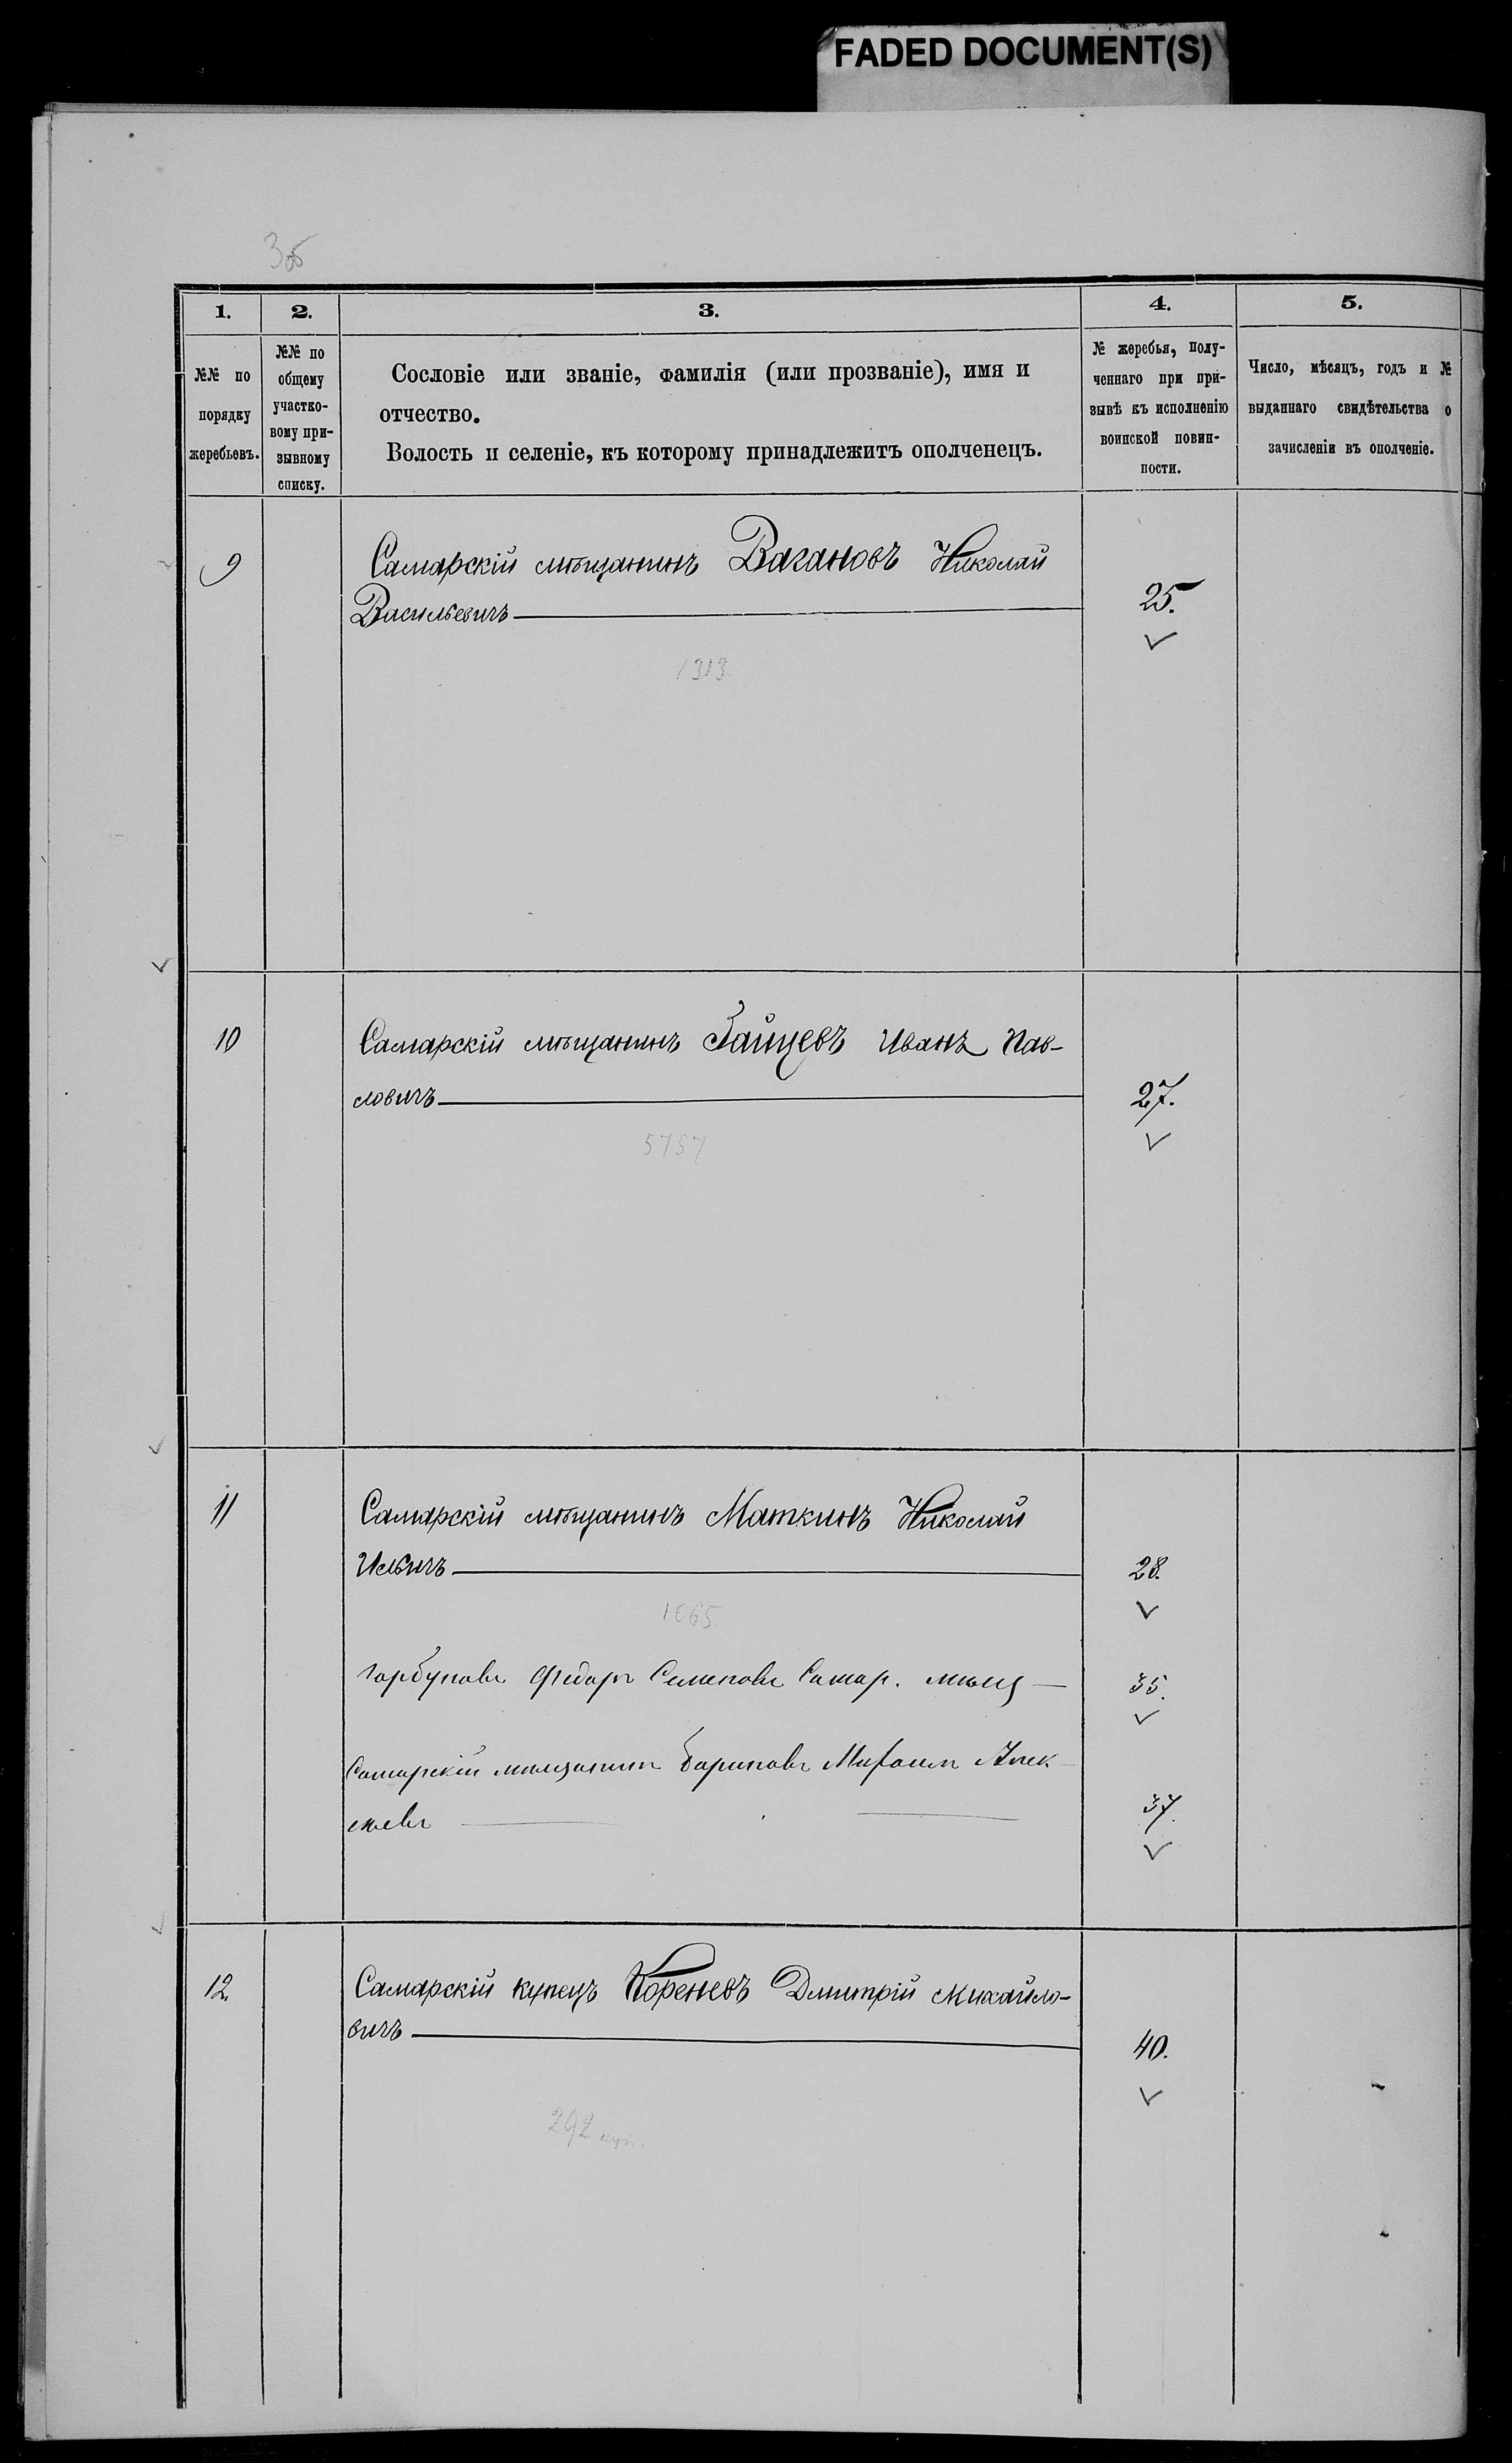 FADED DOCUMENT(S)
1.
2.
3.
4.
5.
№№ по
порядку
жеребьевъ.
№№ по
общему
участко-
вому при-
зывному
списку.
Сословіе или званіе, фамилія (или прозваніе), имя и
отчество.
Волость и селеніе, къ которому принадлежитъ ополченецъ.
№ жеребья, полу-
ченнаго при при-
зывѣ къ исполненію
воинской повин-
ности.
Число, мѣсяцъ, годъ и №
выданнаго свидѣтельства о
зачисленіи въ ополченіе.
9
Самарскій мѣщанинъ Вагановъ Николай
Васильевичъ
25.
1313
10
Самарскій мѣщанинъ Зайцевъ Иванъ Пав-
ловичъ
27.
5757
11
Самарскій мѣщанинъ Маткинъ Николай
Ильичъ
28.
1065
Горбуновъ Федоръ Семеновъ Самар. мѣщ
35.
Самарскій мѣщанинъ Бариновъ Михаилъ Алек-
сѣевъ
37.
12.
Самарскій купецъ Кореневъ Дмитрій Михайло-
вичъ
40.
292 куп.